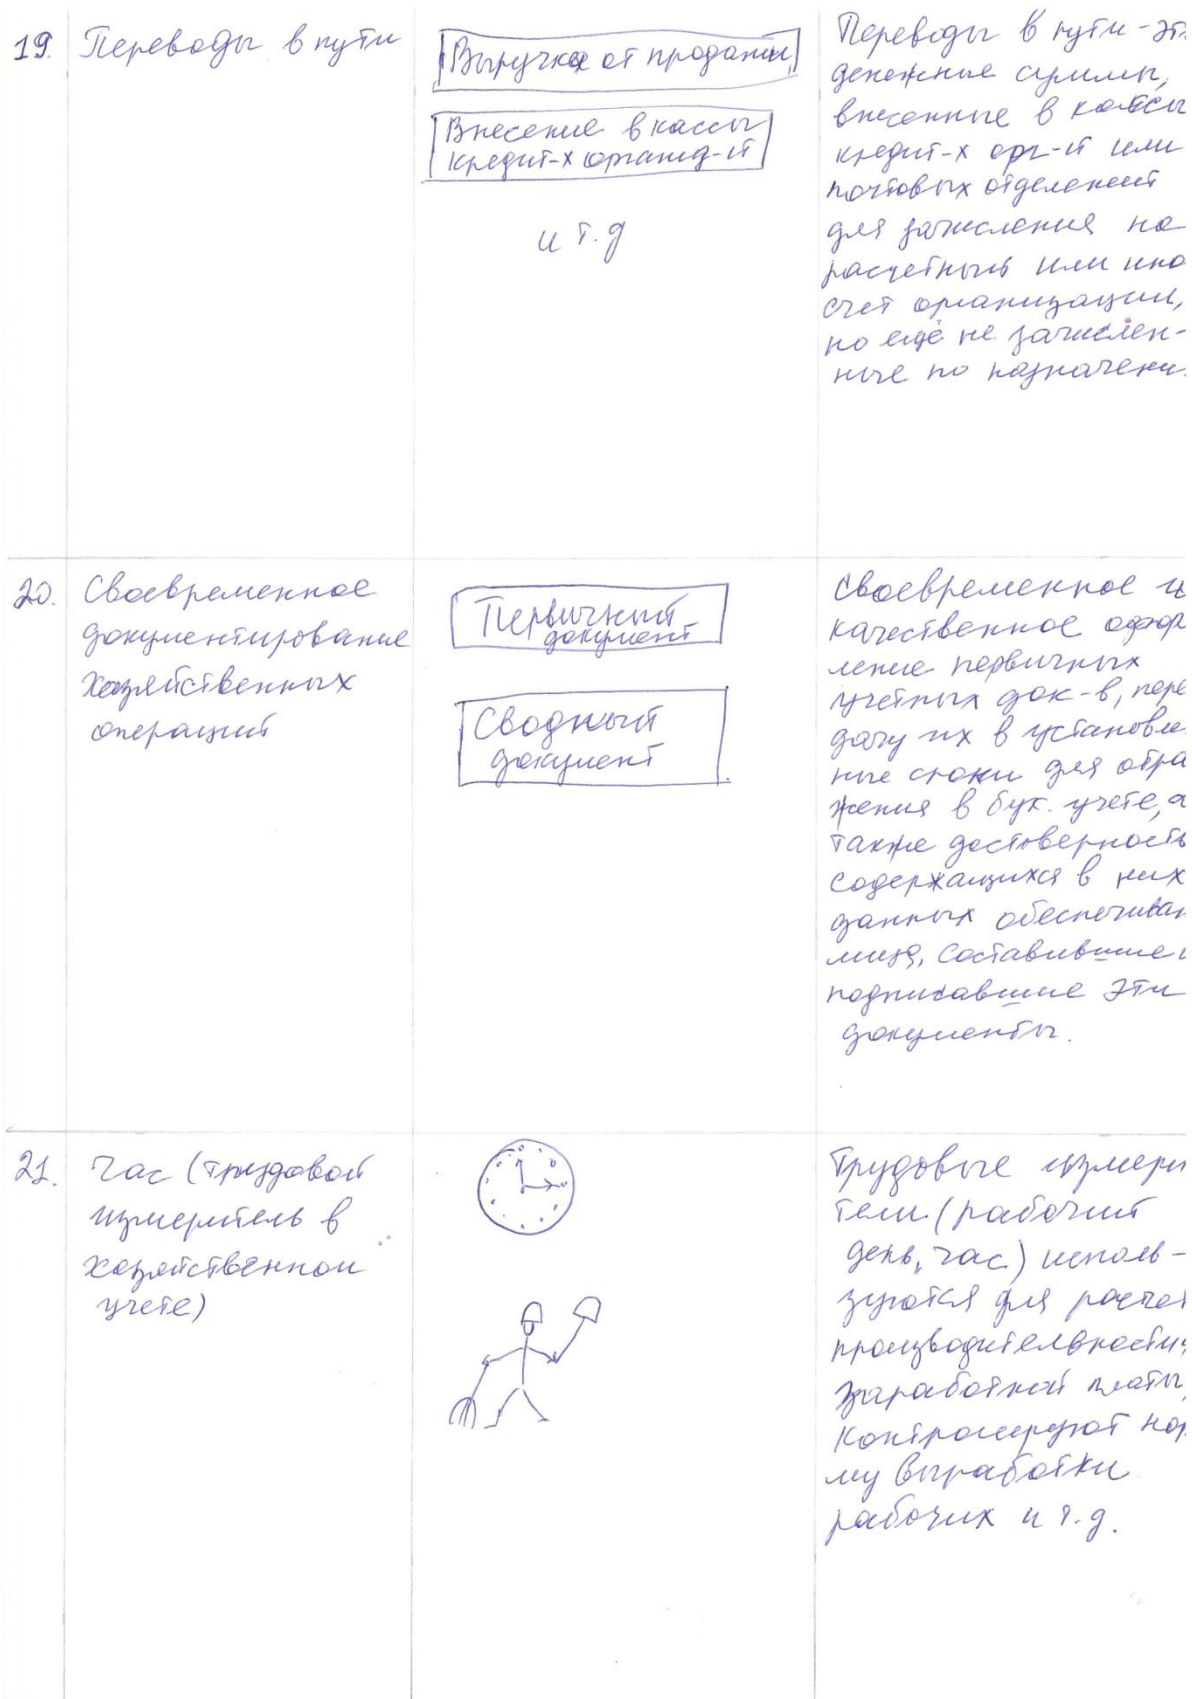 19. Переводы в пути
Выручка от продажи
Внесение в кассы
кредит-х организ-й
и т.д
Переводы в пути - эт
денежные суммы,
внесенные в кассы
кредит-х орг-й или
почтовых отделений
для зачисления на
расчетный или ино
счет организации,
но ещё не зачислен-
ные по назначени
20. Своевременное
документирование
хозяйственных
операций
Первичный
документ
Сводный
документ
Своевременное и
качественное офор
ление первичных
учетных док-в, пере
дачу их в установле
ные сроки для отра
жения в бух. учете, а
также достоверность
содержащихся в них
данных обеспечиваю
лица, составившие и
подписавшие эти
документы.
21. Час (трудовой
измеритель в
хозяйственном
учете)
Трудовые измери
тели (рабочий
день, час) исполь-
зуются для расчет
производительности,
заработной платы,
контролируют нор
му выработки
рабочих и т.д.